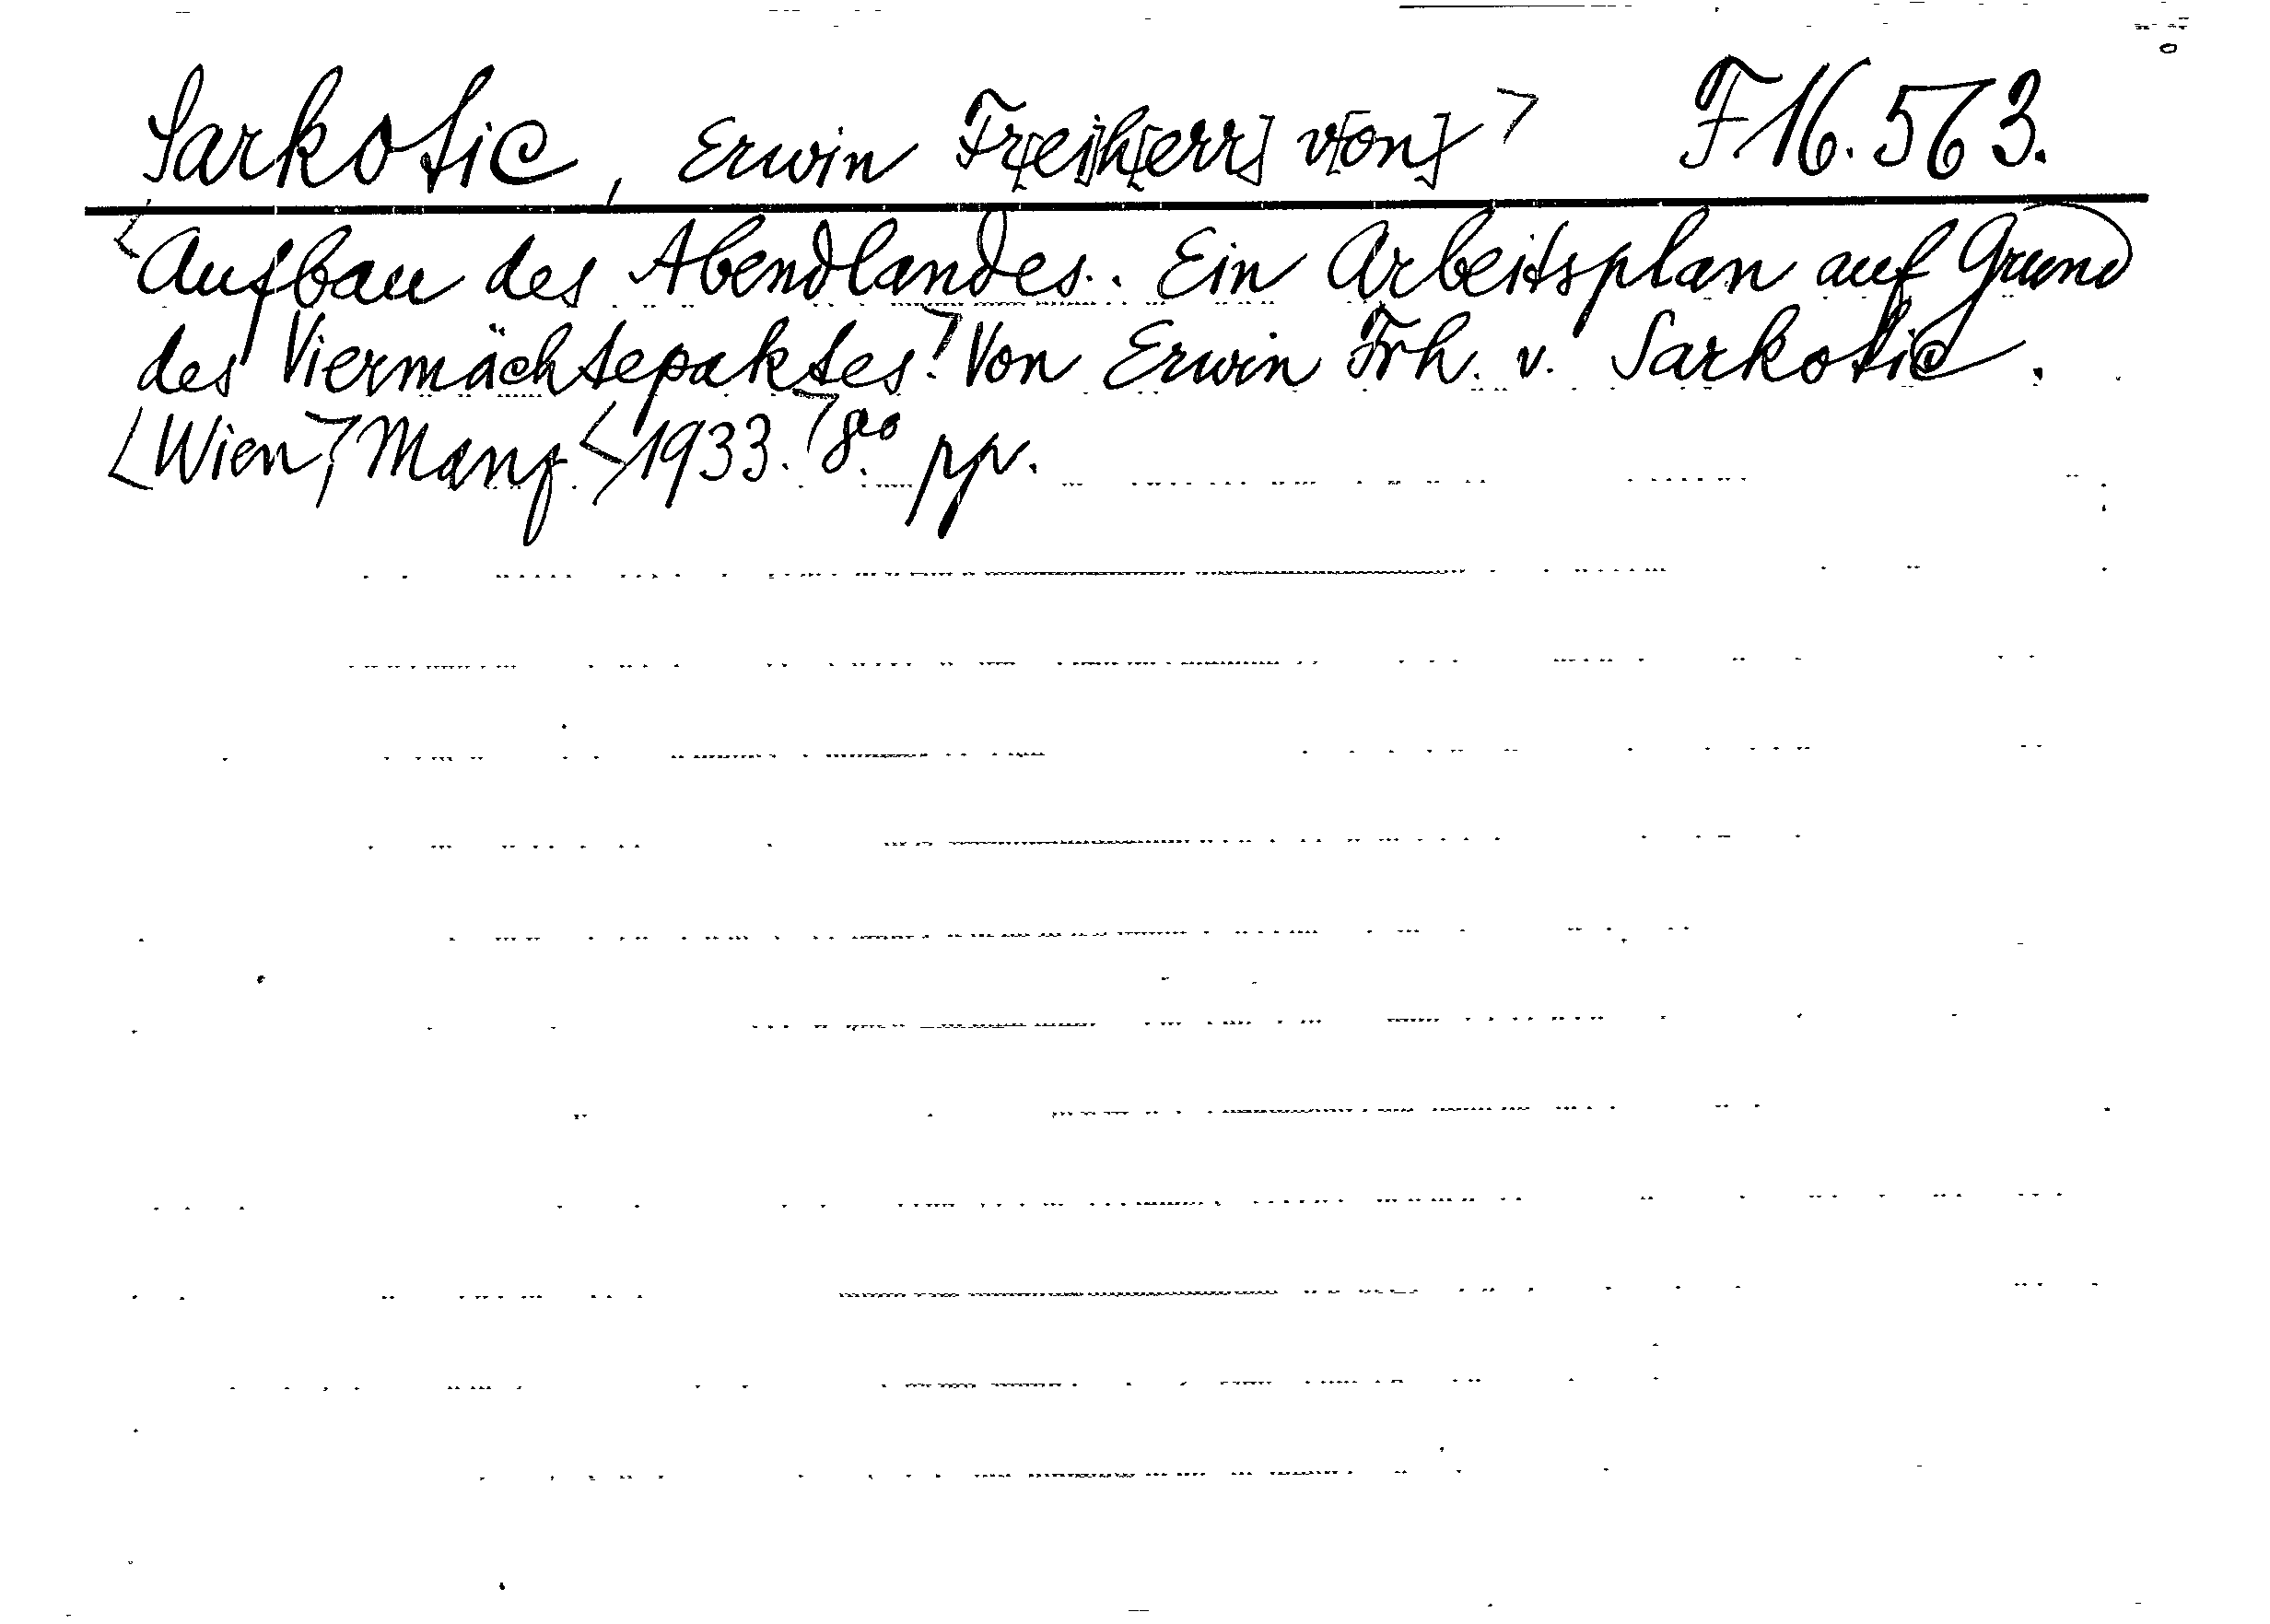 Sarkotic, Erwin Fr[ei]h[err] v[on] > F 16.563.
<Aufbau des Abendlandes. Ein Arbeitsplan auf Grund
des Viermächtepaktes.> Von Erwin Frh. v. Sarkotic.
<Wien,> Manz <1933.> 8° pp.